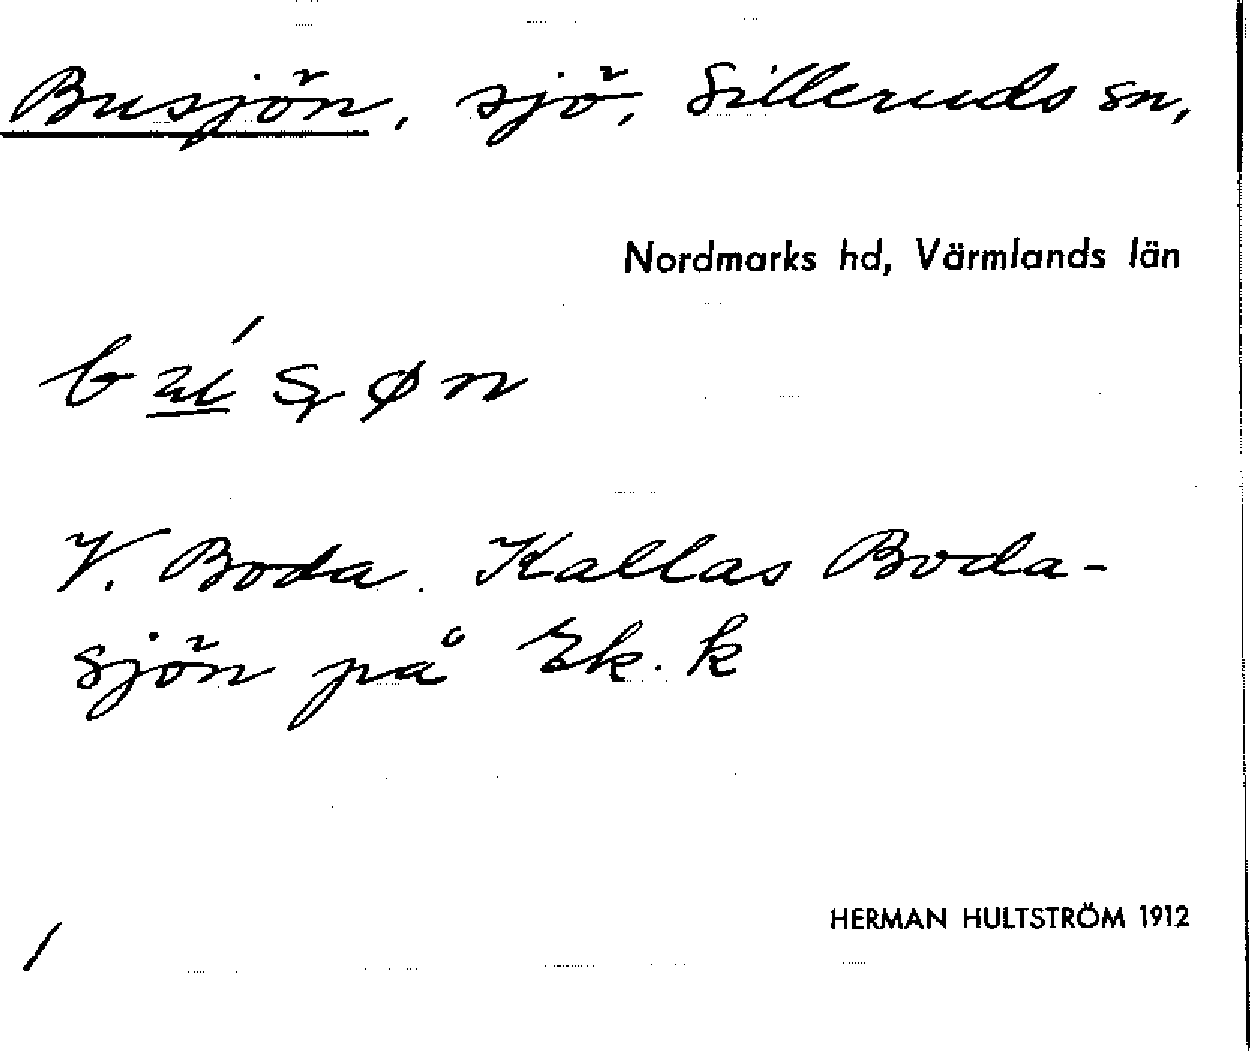 Busjön, sjö, Silleruds sn,
Nordmarks hd, Värmlands län
V. Boda. Kallas Boda-
sjön på Ek. k
HERMAN HULTSTRÖM 1912